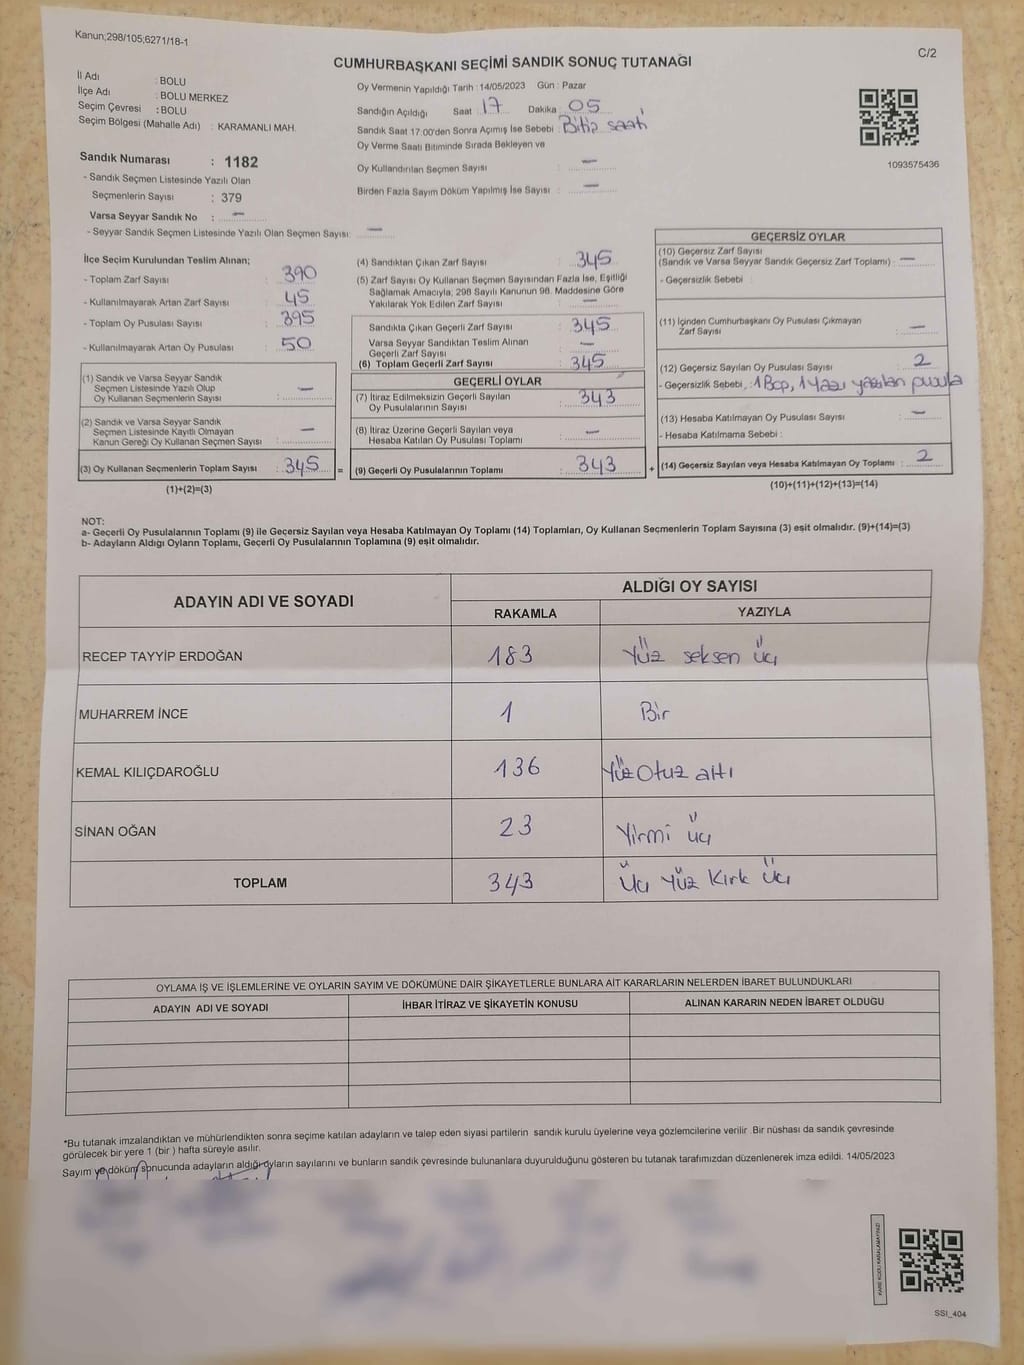 Kanun;298/105;6271/18-1
C/2
CUMHURBAŞKANI SEÇİMİ SANDIK SONUÇ TUTANAĞI
İl Adı : BOLU
İlçe Adı : BOLU MERKEZ
Seçim Çevresi : BOLU
Seçim Bölgesi (Mahalle Adı) : KARAMANLI MAH.
Oy Vermenin Yapıldığı Tarih : 14/05/2023 Gün : Pazar
Sandığın Açıldığı Saat 17 Dakika 05
Sandık Saat 17:00'den Sonra Açımış İse Sebebi : Bitiş saati
Oy Verme Saati Bitiminde Sırada Bekleyen ve
Oy Kullandırılan Seçmen Sayısı : —
Birden Fazla Sayım Döküm Yapılmış İse Sayısı : —
1093575436
Sandık Numarası : 1182
- Sandık Seçmen Listesinde Yazılı Olan
Seçmenlerin Sayısı : 379
Varsa Seyyar Sandık No : —
- Seyyar Sandık Seçmen Listesinde Yazılı Olan Seçmen Sayısı: —
İlçe Seçim Kurulundan Teslim Alınan;
- Toplam Zarf Sayısı : 390
- Kullanılmayarak Artan Zarf Sayısı : 45
- Toplam Oy Pusulası Sayısı : 395
- Kullanılmayarak Artan Oy Pusulası : 50
(1) Sandık ve Varsa Seyyar Sandık
Seçmen Listesinde Yazılı Olup
Oy Kullanan Seçmenlerin Sayısı : —
(2) Sandık ve Varsa Seyyar Sandık
Seçmen Listesinde Kayıtlı Olmayan
Kanun Gereği Oy Kullanan Seçmen Sayısı : —
(3) Oy Kullanan Seçmenlerin Toplam Sayısı : 345 =
(1)+(2)=(3)
(4) Sandıktan Çıkan Zarf Sayısı : 345
(5) Zarf Sayısı Oy Kullanan Seçmen Sayısından Fazla İse, Eşitliği
Sağlamak Amacıyla; 298 Sayılı Kanunun 98. Maddesine Göre
Yakılarak Yok Edilen Zarf Sayısı : —
Sandıkta Çıkan Geçerli Zarf Sayısı : 345
Varsa Seyyar Sandıktan Teslim Alınan
Geçerli Zarf Sayısı : —
(6) Toplam Geçerli Zarf Sayısı : 345
GEÇERLİ OYLAR
(7) İtiraz Edilmeksizin Geçerli Sayılan
Oy Pusulalarının Sayısı : 343
(8) İtiraz Üzerine Geçerli Sayılan veya
Hesaba Katılan Oy Pusulası Toplamı : —
(9) Geçerli Oy Pusulalarının Toplamı : 343 +
GEÇERSİZ OYLAR
(10) Geçersiz Zarf Sayısı
(Sandık ve Varsa Seyyar Sandık Geçersiz Zarf Toplamı) : —
- Geçersizlik Sebebi :
(11) İçinden Cumhurbaşkanı Oy Pusulası Çıkmayan
Zarf Sayısı : —
(12) Geçersiz Sayılan Oy Pusulası Sayısı : 2
- Geçersizlik Sebebi : 1 Boş, 1 Yazı yazılan pusula
(13) Hesaba Katılmayan Oy Pusulası Sayısı : —
- Hesaba Katılmama Sebebi :
(14) Geçersiz Sayılan veya Hesaba Katılmayan Oy Toplamı : 2
(10)+(11)+(12)+(13)=(14)
NOT:
a- Geçerli Oy Pusulalarının Toplamı (9) ile Geçersiz Sayılan veya Hesaba Katılmayan Oy Toplamı (14) Toplamları, Oy Kullanan Seçmenlerin Toplam Sayısına (3) eşit olmalıdır. (9)+(14)=(3)
b- Adayların Aldığı Oyların Toplamı, Geçerli Oy Pusulalarının Toplamına (9) eşit olmalıdır.
ADAYIN ADI VE SOYADI ALDIĞI OY SAYISI
RAKAMLA YAZIYLA
RECEP TAYYİP ERDOĞAN 183 Yüz seksen üç
MUHARREM İNCE 1 Bir
KEMAL KILIÇDAROĞLU 136 Yüz Otuz altı
SİNAN OĞAN 23 Yirmi üç
TOPLAM 343 Üç Yüz Kırk Üç
OYLAMA İŞ VE İŞLEMLERİNE VE OYLARIN SAYIM VE DÖKÜMÜNE DAİR ŞİKAYETLERLE BUNLARA AİT KARARLARIN NELERDEN İBARET BULUNDUKLARI
ADAYIN ADI VE SOYADI İHBAR İTİRAZ VE ŞİKAYETİN KONUSU ALINAN KARARIN NEDEN İBARET OLDUĞU
*Bu tutanak imzalandıktan ve mühürlendikten sonra seçime katılan adayların ve talep eden siyasi partilerin sandık kurulu üyelerine veya gözlemcilerine verilir .Bir nüshası da sandık çevresinde
görülecek bir yere 1 (bir ) hafta süreyle asılır.
Sayım ve döküm sonucunda adayların aldığı oyların sayılarını ve bunların sandık çevresinde bulunanlara duyurulduğunu gösteren bu tutanak tarafımızdan düzenlenerek imza edildi. 14/05/2023
KARE KODU KARALAMAYINIZ!
SSI_404